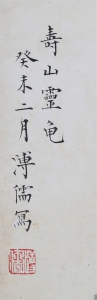 壽山靈龟
癸未二月溥儒寫